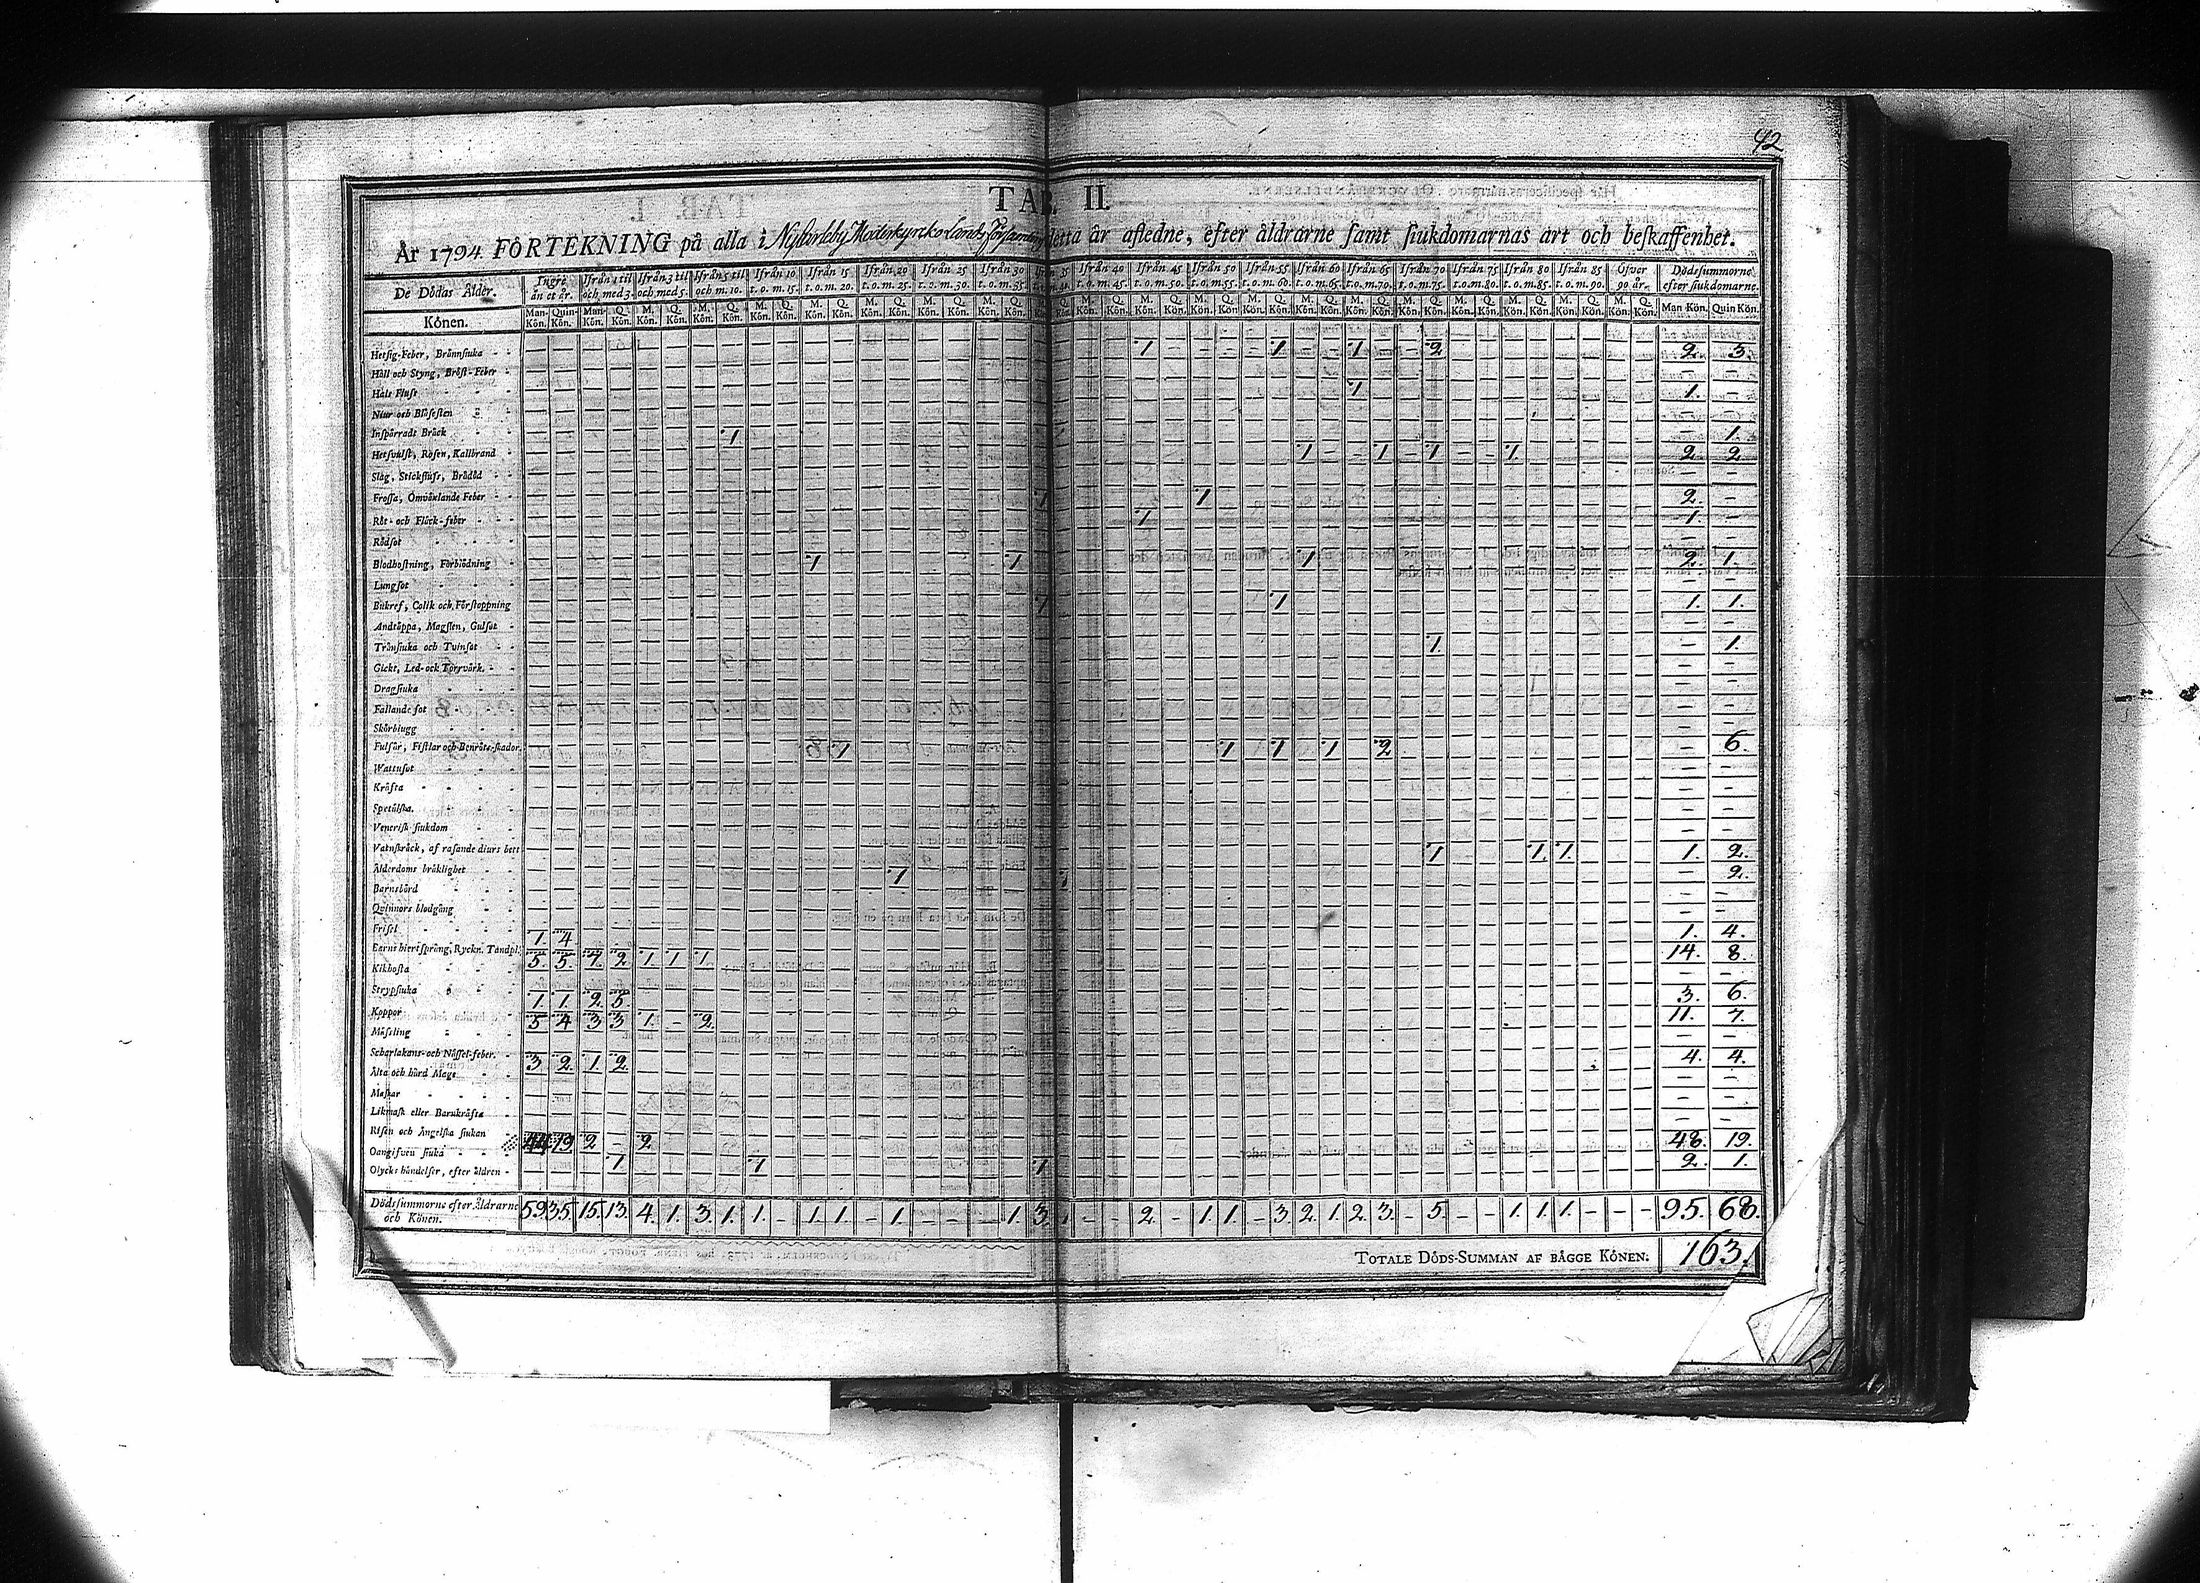 42
TAB. II.
År 1794 FÖRTEKNING på alla i Nykarleby Moderkyrko Lands församling detta år afledne, efter åldrarne samt siukdomarnas art och beskaffenhet.
De Dödas Ålder. Ingre än et år. Ifrån 1 til och med 3. Ifrån 3 til och med 5. Ifrån 5 til och m. 10. Ifrån 10 t. o. m. 15. Ifrån 15 t. o. m. 20. Ifrån 20 t. o. m. 25. Ifrån 25 t. o. m. 30. Ifrån 30 t. o. m. 35. 35 40. Ifrån 40 t. o. m. 45. Ifrån 45 t. o. m. 50. Ifrån 50 t. o. m. 55. Ifrån 55 t. o. m. 60. Ifrån 60 t. o. m. 65. Ifrån 65 t. o. m. 70. Ifrån 70 t. o. m. 75. Ifrån 75 t. o. m. 80. Ifrån 80 t. o. m. 85. Ifrån 85 t. o. m. 90. Öfver 90 år. Dödssummorne efter siukdomarne.
Könen. Man-Kön. Quin-Kön. Man-Kön. Q. Kön. M. Kön. Q. Kön. Man Kön. Quin Kön.
Hetsig-Feber, Brännsiuka - - 1. 1. 1. 2. 2. 3.
Håll och Styng, Bröst-Feber - - -
Hals Fluss 1. 1. -
Niur och Blåsesten - -
Inspärradt Bråck 1. 1.
Hetsvulst, Rosen, Kallbrand 1. 1. 1. 1. 2. 2.
Slag, Stickfluss, Brådöd - -
Frossa, Omväxlande Feber 1. 1. 2. -
Röt- och Fläck-feber 1. 1. -
Rödsot - -
Blodhostning, Förblödning 1. 1. 1. 2. 1.
Lungsot - -
Bukref, Colik och Förstoppning 1. 1. 1. 1.
Andtäppa, Magsten, Gulsot - -
Trånsiuka och Tvinsot 1. 1.
Gickt, Led-ock Torrvärk - -
Dragsiuka - -
Fallande sot - -
Skörbiugg - -
Fulsår, Fistlar och Benröte-skador 1. 1. 1. 1. 2. - 6.
Wattusot - -
Kräfta - -
Spetälska - -
Venerisk siukdom - -
Vatnskräck, af rasande diurs bett
Ålderdoms bräklighet 1. 1. 1. 1. 2.
Barnsbörd 1. 1. 2.
Quinnors blodgång - -
Frisel - -
Barns hiertsprång, Ryckn. Tandpl. 1. 4. 1. 4.
Kikhosta 5. 5. 7. 2. 1. 1. 1. 14. 8.
Strypsiuka - -
Koppor 1. 1. 2. 5. 3. 6.
Mässling 5. 4. 3. 3. 1. - 2. 11. 7.
Scharlakans-och Nässel-feber. - -
Älta och hård Mage 3. 2. 1. 2. 4. 4.
Maskar - -
Likmask eller Barnkräfta - -
Risen och Ängelska siukan - -
Oangifven siuka 44. 19. 2. - 2. 48. 19.
Olycks händelser, efter åldren 1. 1. 1. 2. 1.
Dödssummorne efter Åldrarne och Könen. 59. 35. 15. 13. 4. 1. 3. 1. 1. - 1. 1. - 1. - - - 1. 3. 1. - - 2. - 1. 1. - 3. 2. 1. 2. 3. - 5. - - 1. 1. 1. - - - 95. 68.
TOTALE DÖDS-SUMMAN AF BÅGGE KÖNEN. 163.